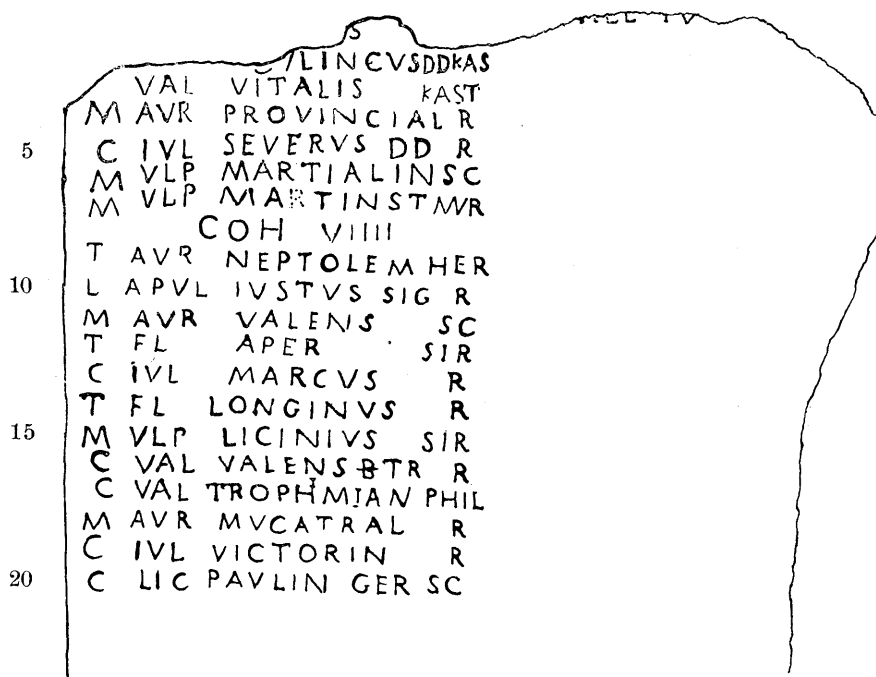 S
LINCVS DD KAS
VAL VITALIS KAST
M AVR PROVINCIAL R
5 C IVL SEVERVS DD R
M VLP MARTIALIN SC
M VLP MARTINS T MVR
COH VIIII
T AVR NEPTOLEM HER
10 L APVL IVSTVS SIG R
M AVR VALENS SC
T FL APER SIR
C IVL MARCVS R
T FL LONGINVS R
15 M VLP LICINIVS SIR
C VAL VALENS BTR R
C VAL TROPHIMIAN PHIL
M AVR MVCATRAL R
C IVL VICTORIN R
20 C LIC PAVLIN GER SC